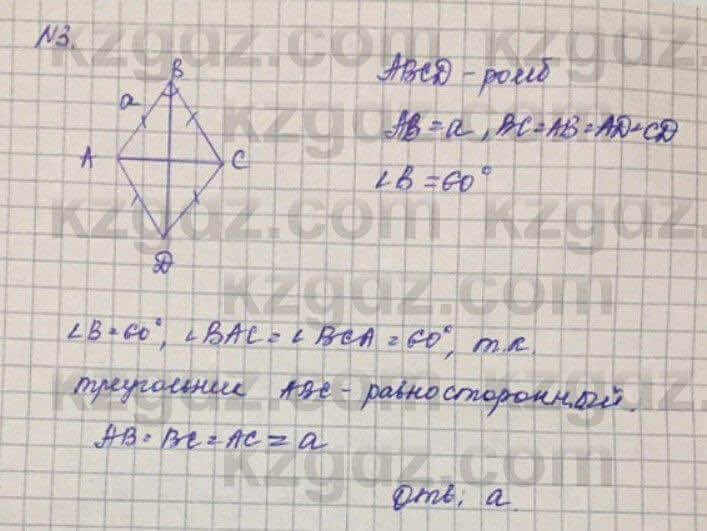 N3.
B
a
A
C
D
ABCD - ромб
AB = a, BC = AB = AD = CD
∠B = 60°
∠B = 60°, ∠BAC = ∠BCA = 60°, т.к.
треугольник ABC - равносторонный.
AB = BC = AC = a
Отв: a.
kzgdz.com
kzgdz.com
kzgdz.com
kzgdz.com
kzgdz.com
kzgdz.com
kzgdz.com
kzgdz.com